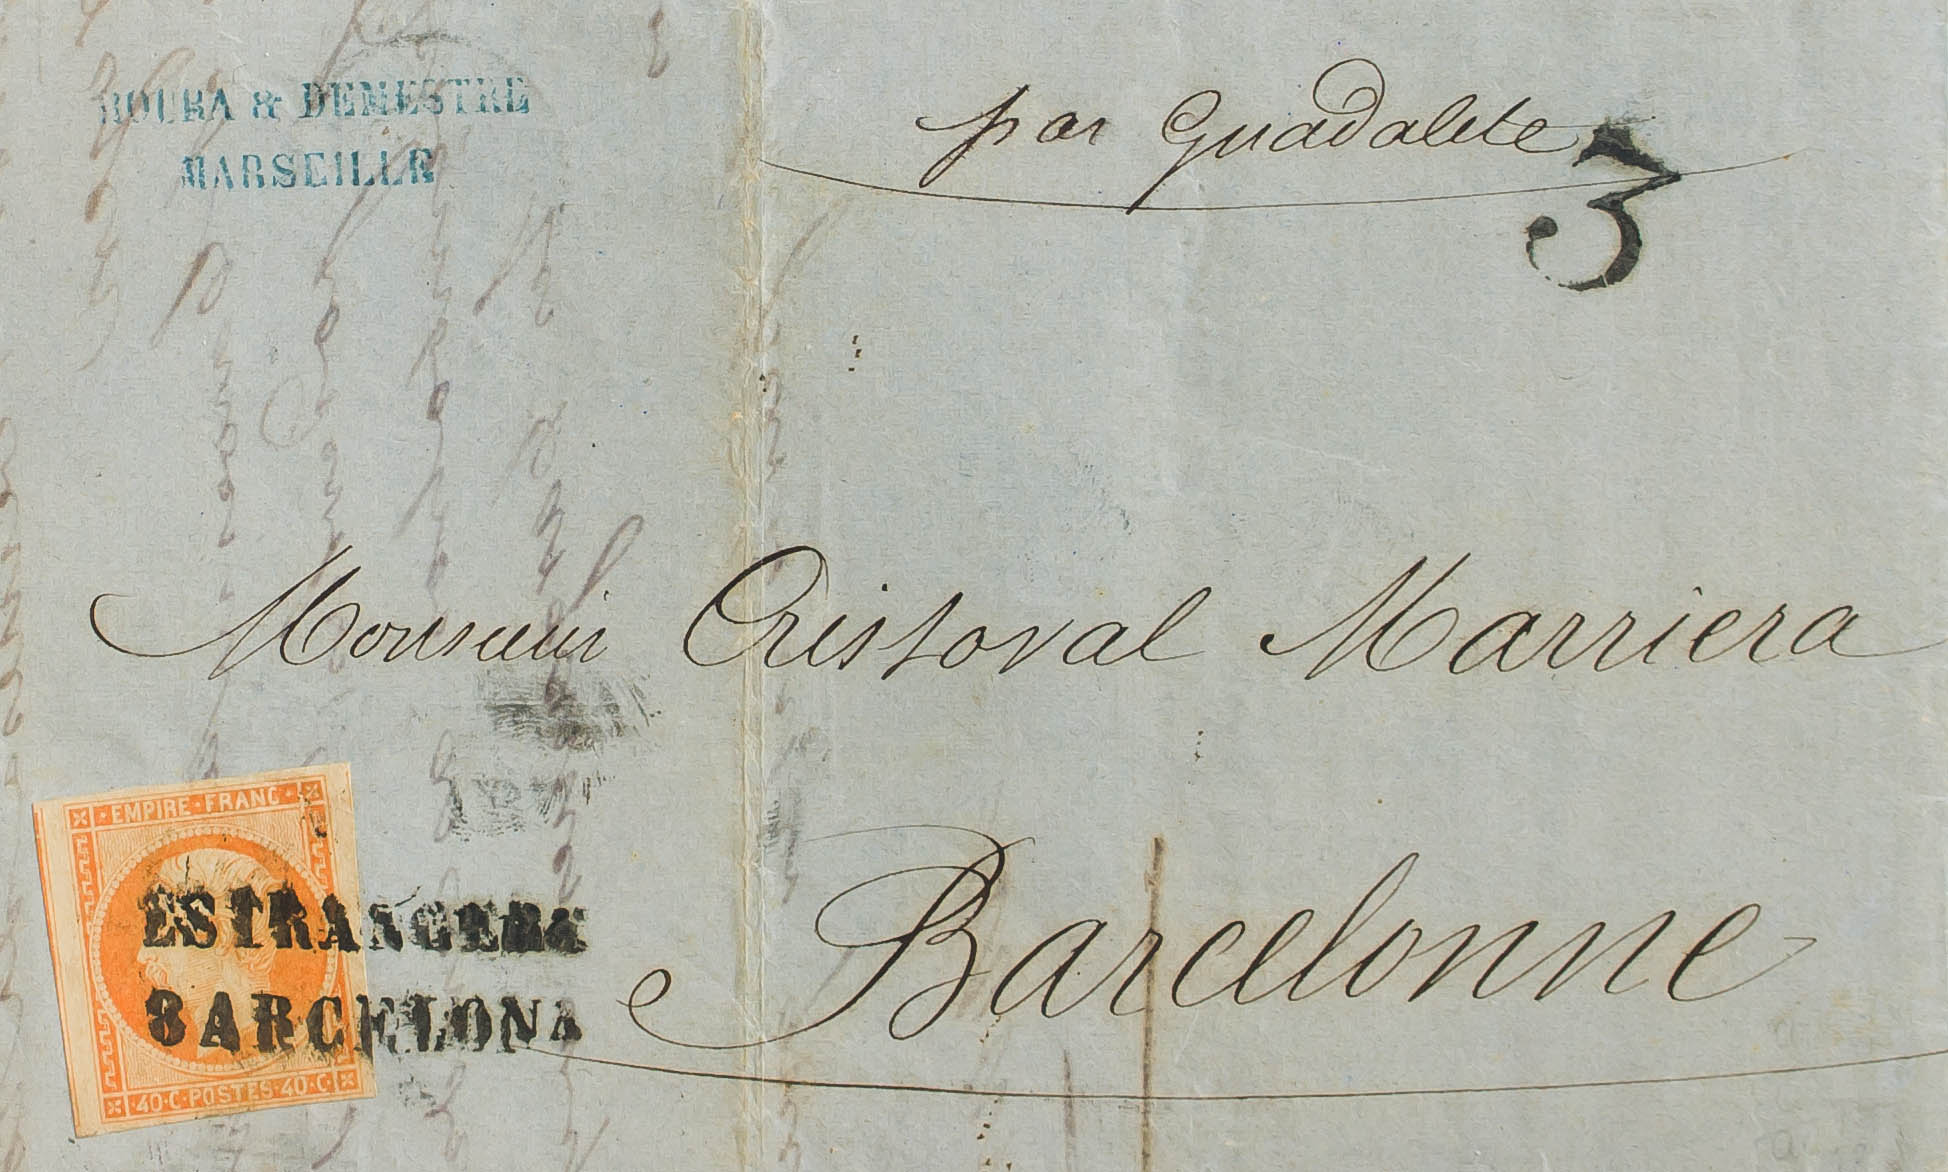 ROURA & DEMESTRE
MARSEILLE
par Guadalete
3
Monsieur Cristoval Marriera
EMPIRE·FRANC
ESTRANGERA
BARCELONA
Barcelonne
40·C·POSTES·40·C